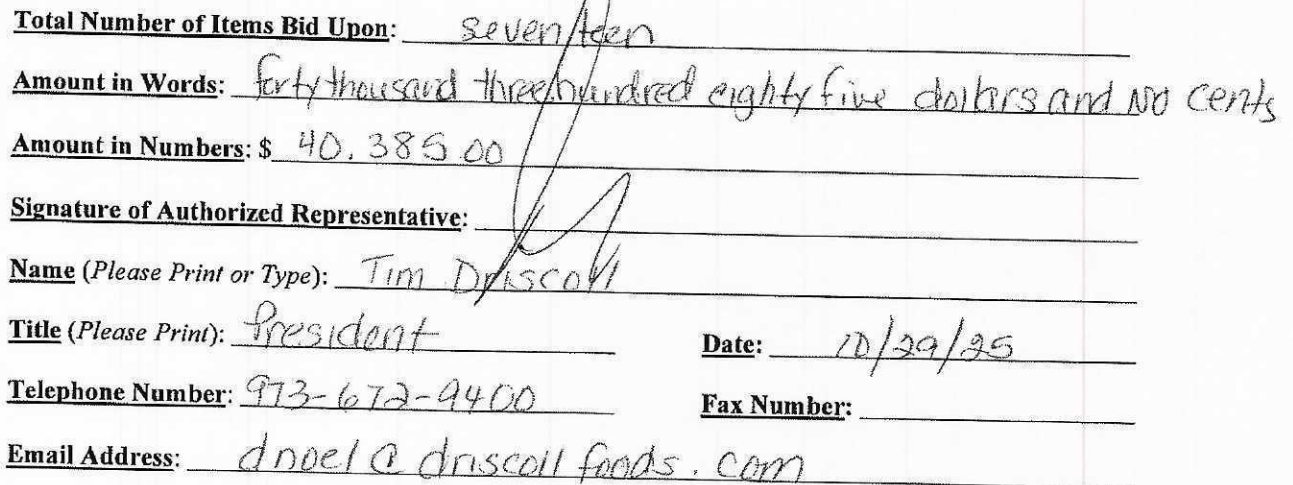 Total Number of Items Bid Upon: seventeen
Amount in Words: forty thousand three hundred eighty five dollars and no cents
Amount in Numbers: $ 40,385.00
Signature of Authorized Representative:
Name (Please Print or Type): Tim Driscoll
Title (Please Print): President Date: 10/29/25
Telephone Number: 973-672-9400 Fax Number:
Email Address: dnoel@driscollfoods.com